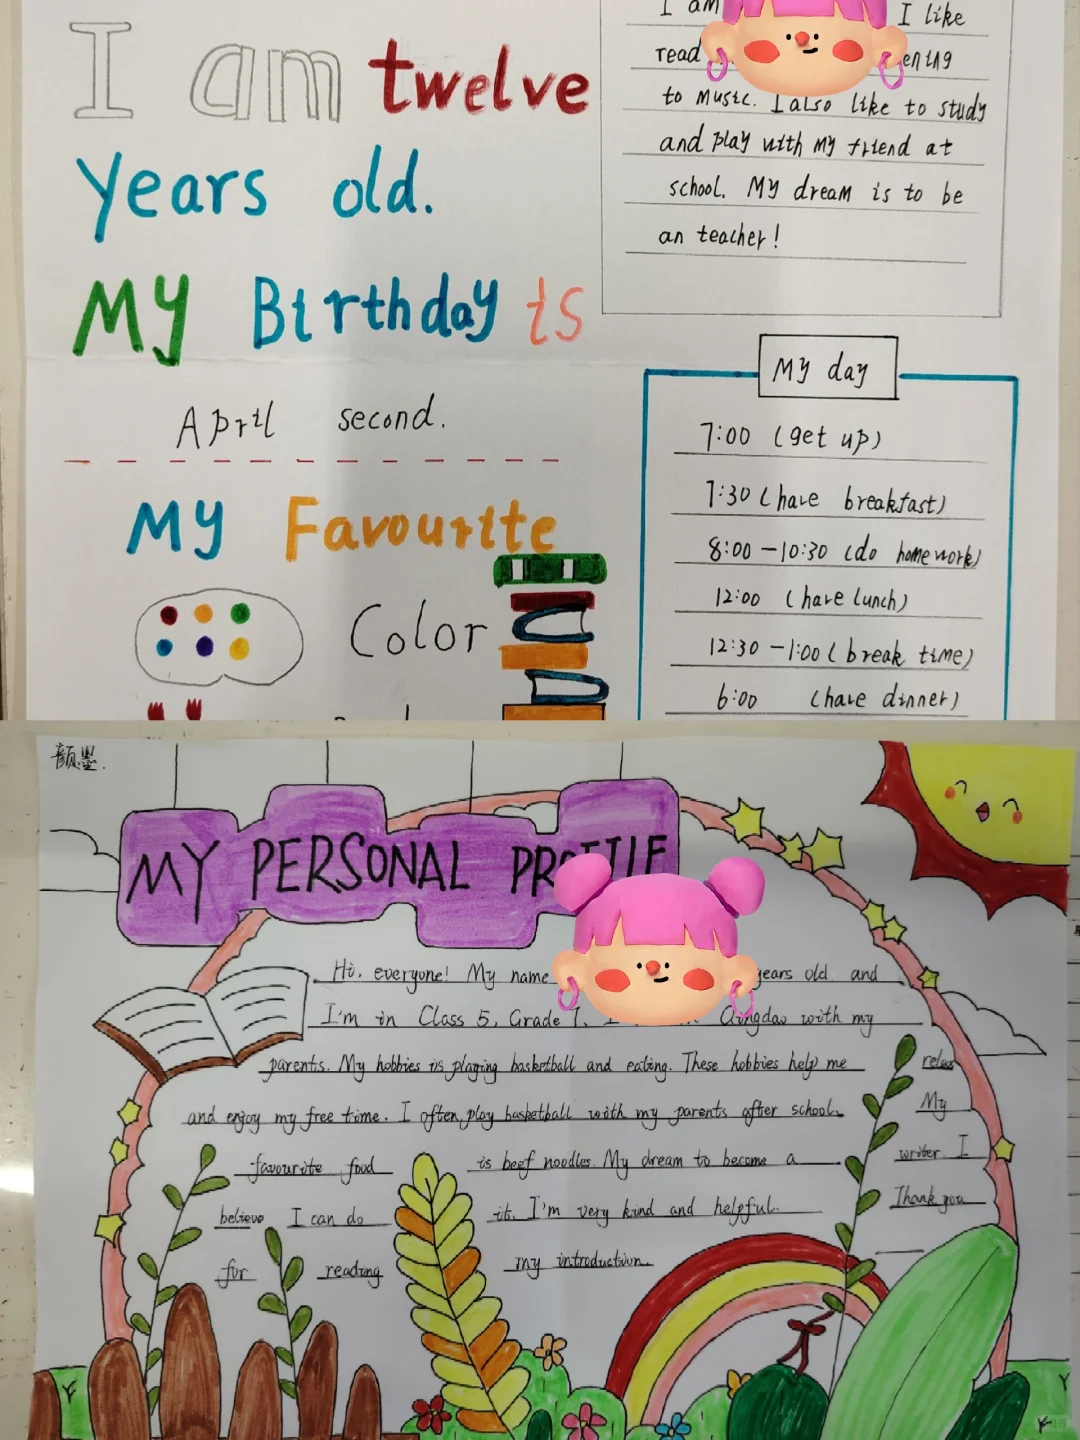 I am twelve
years old.
My Birthday is
April second.
My Favourite
Color
I am I like
read ening
to music. I also like to study
and play with my friend at
school. My dream is to be
an teacher!
My day
7:00 (get up)
7:30 (have breakfast)
8:00 - 10:30 (do homework)
12:00 (have lunch)
12:30 - 1:00 (break time)
6:00 (have dinner)
颜墨.
MY PERSONAL PROFILE
Hi, everyone! My name years old and
I'm in Class 5, Grade 7. I Qingdao with my
parents. My hobbies is playing basketball and eating. These hobbies help me relax
and enjoy my free time. I often play basketball with my parents after school. My
favourite food is beef noodles. My dream to become a writer. I
believe I can do it. I'm very kind and helpful. Thank you
for reading my introduction.